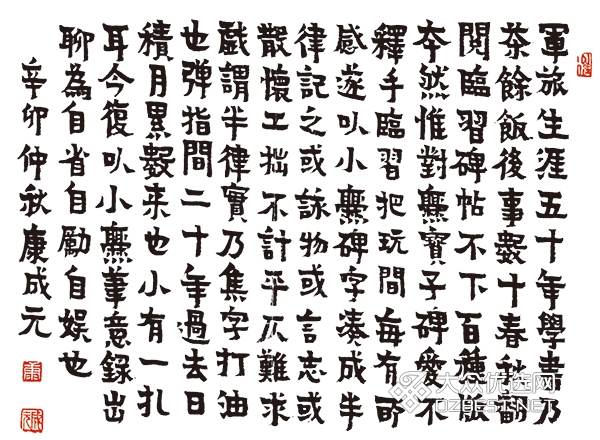 軍旅生涯五十年學書乃
茶餘飯後事數十春秋翻
閱臨習碑帖不下百種版
本然惟對爨寶子碑愛不
釋手臨習把玩間每有所
感遂以小爨碑字湊成半
律記之或詠物或言志或
散懷工拙不計平仄難求
戲謂半律實乃集字打油
也彈指間二十年過去日
積月累數来也小有一扎
耳今復以小爨筆意錄出
聊為自省自勵自娛也
辛卯仲秋康成元
大众优选网
OZBEST.NET